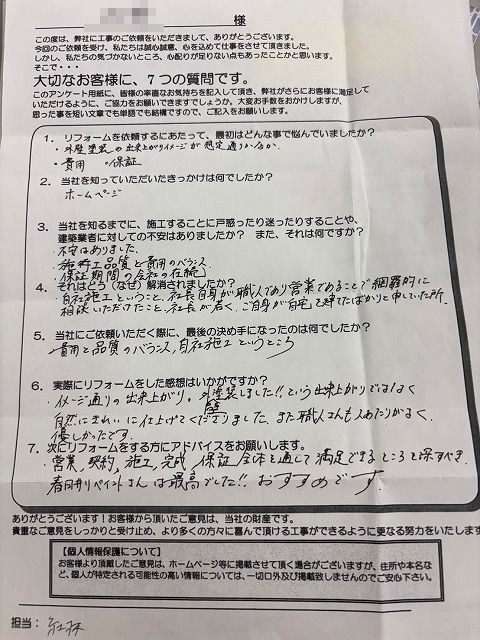 様
この度は、弊社に工事のご依頼をいただきまして、ありがとうございます。
今回のご依頼を受け、私たちは誠心誠意、心を込めて仕事をさせて頂きました。
しかし、私たちの気づかないところ、心配りが足りない点もあったことかと思います。
そこで・・・
大切なお客様に、7つの質問です。
このアンケート用紙に、皆様の率直なお気持ちを記入して頂き、弊社がさらにお客様に満足して
いただけるように、ご協力をお願いできますでしょうか。大変お手数をおかけしますが、
思った事を短い文章でも単語でも結構ですので、ご記入をお願いします。
1. リフォームを依頼するにあたって、最初はどんな事で悩んでいましたか?
・外壁塗装の出来上がりイメージが想定通りか否か
・費用 ・保証
2. 当社を知っていただいたきっかけは何でしたか?
ホームページ
3. 当社を知るまでに、施工することに戸惑ったり迷ったりすることや、
建築業者に対しての不安はありましたか? また、それは何ですか?
・不安はありました。
・施工品質と費用のバランス
・保証期間の会社の存続
4. それはどう(なぜ)解消されましたか?
・自社施工ということ、社長自身が職人であり営業であることで網羅的に
相談いただけたこと、社長が若く、ご自身が自宅を建てたばかりと申していた所。
5. 当社にご依頼いただく際に、最後の決め手になったのは何でしたか?
・費用と品質のバランス、自社施工というところ
6. 実際にリフォームをした感想はいかがですか?
・イメージ通りの出来上がり。外壁塗装しました!!という出来上がりではなく
自然にきれいに仕上げてくださりました。また職人さんも人あたりがよく、
優しかったです。
7. 次にリフォームをする方にアドバイスをお願いします。
・営業、契約、施工、完成、保証 全体を通して満足できるところを探すべき。
春日井リペイントさんは最高でした!! おすすめです。
ありがとうございます!お客様から頂いたご意見は、当社の財産です。
貴重なご意見をしっかりと受け止め、より多くの方々に喜んで頂ける工事ができるように更なる努力をいたします
【個人情報保護について】
お客様より頂戴したご意見は、ホームページ等に掲載させて頂く場合がございますが、住所や本名な
ど、個人が特定される可能性の高い情報については、一切口外及び掲載致しませんのでご安心下さい。
担当: